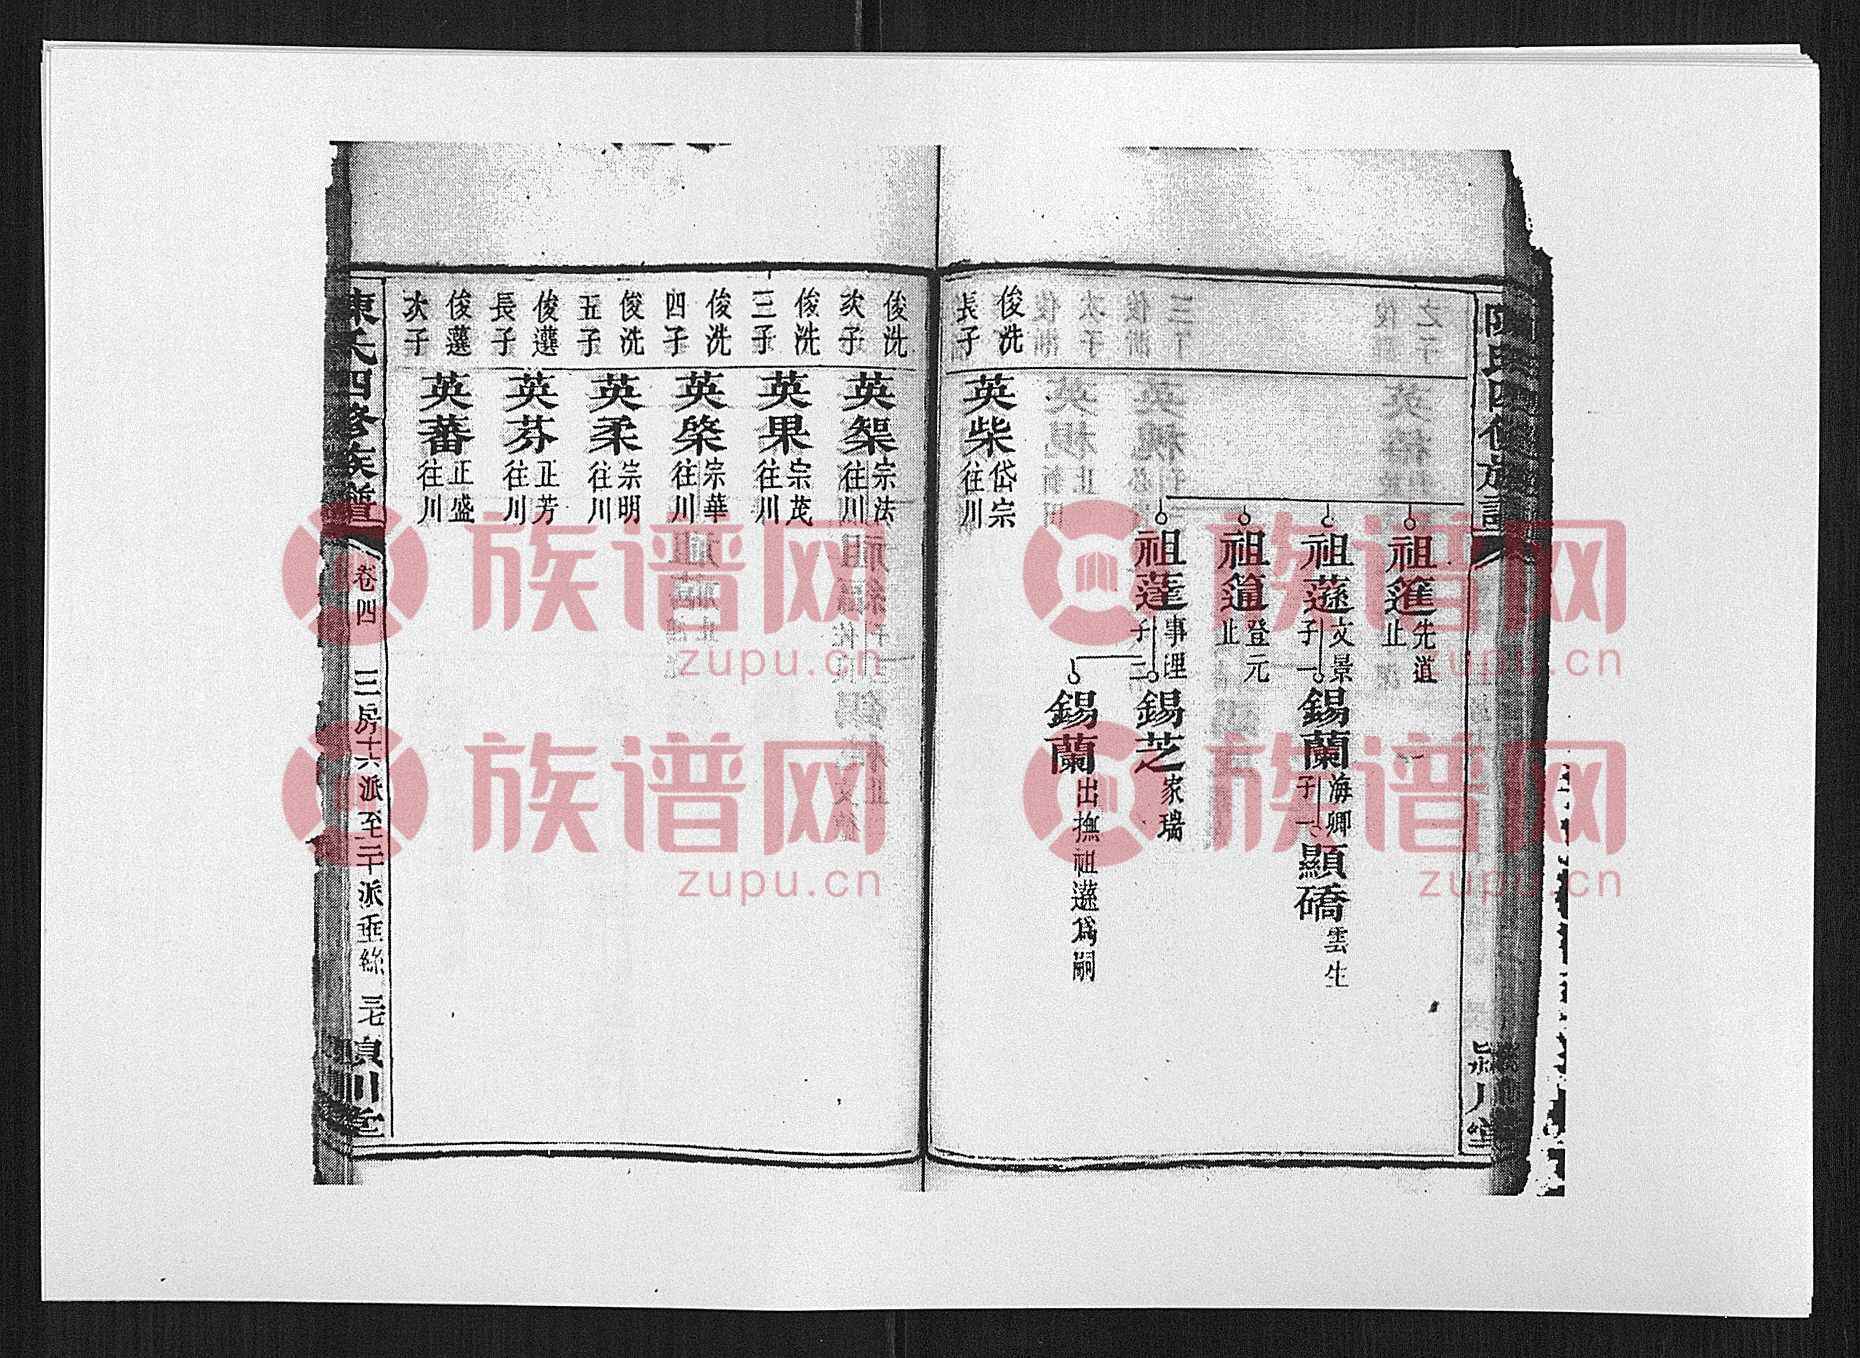 祖䉐
先道
止
祖薳
文景
子一
錫蘭
海卿
子一
顯礄
雲生
登元
止
祖蓬
事理
子二
錫芝
家瑞
錫蘭
出撫祖薳爲嗣
俊洗
長子
英柴
岱宗
往川
俊洗
次子
英樂
宗法
往川
俊洗
三子
英果
宗茂
往川
俊洗
四子
英棨
宗華
往川
俊洗
五子
英柔
宗明
往川
俊選
長子
英芬
正芳
往川
俊選
次子
英蕃
正盛
往川
陳氏四修族譜
卷四
三房十六派至二十派垂絲
潁川堂
族谱网
zupu.cn
族谱网
zupu.cn
族谱网
zupu.cn
族谱网
zupu.cn